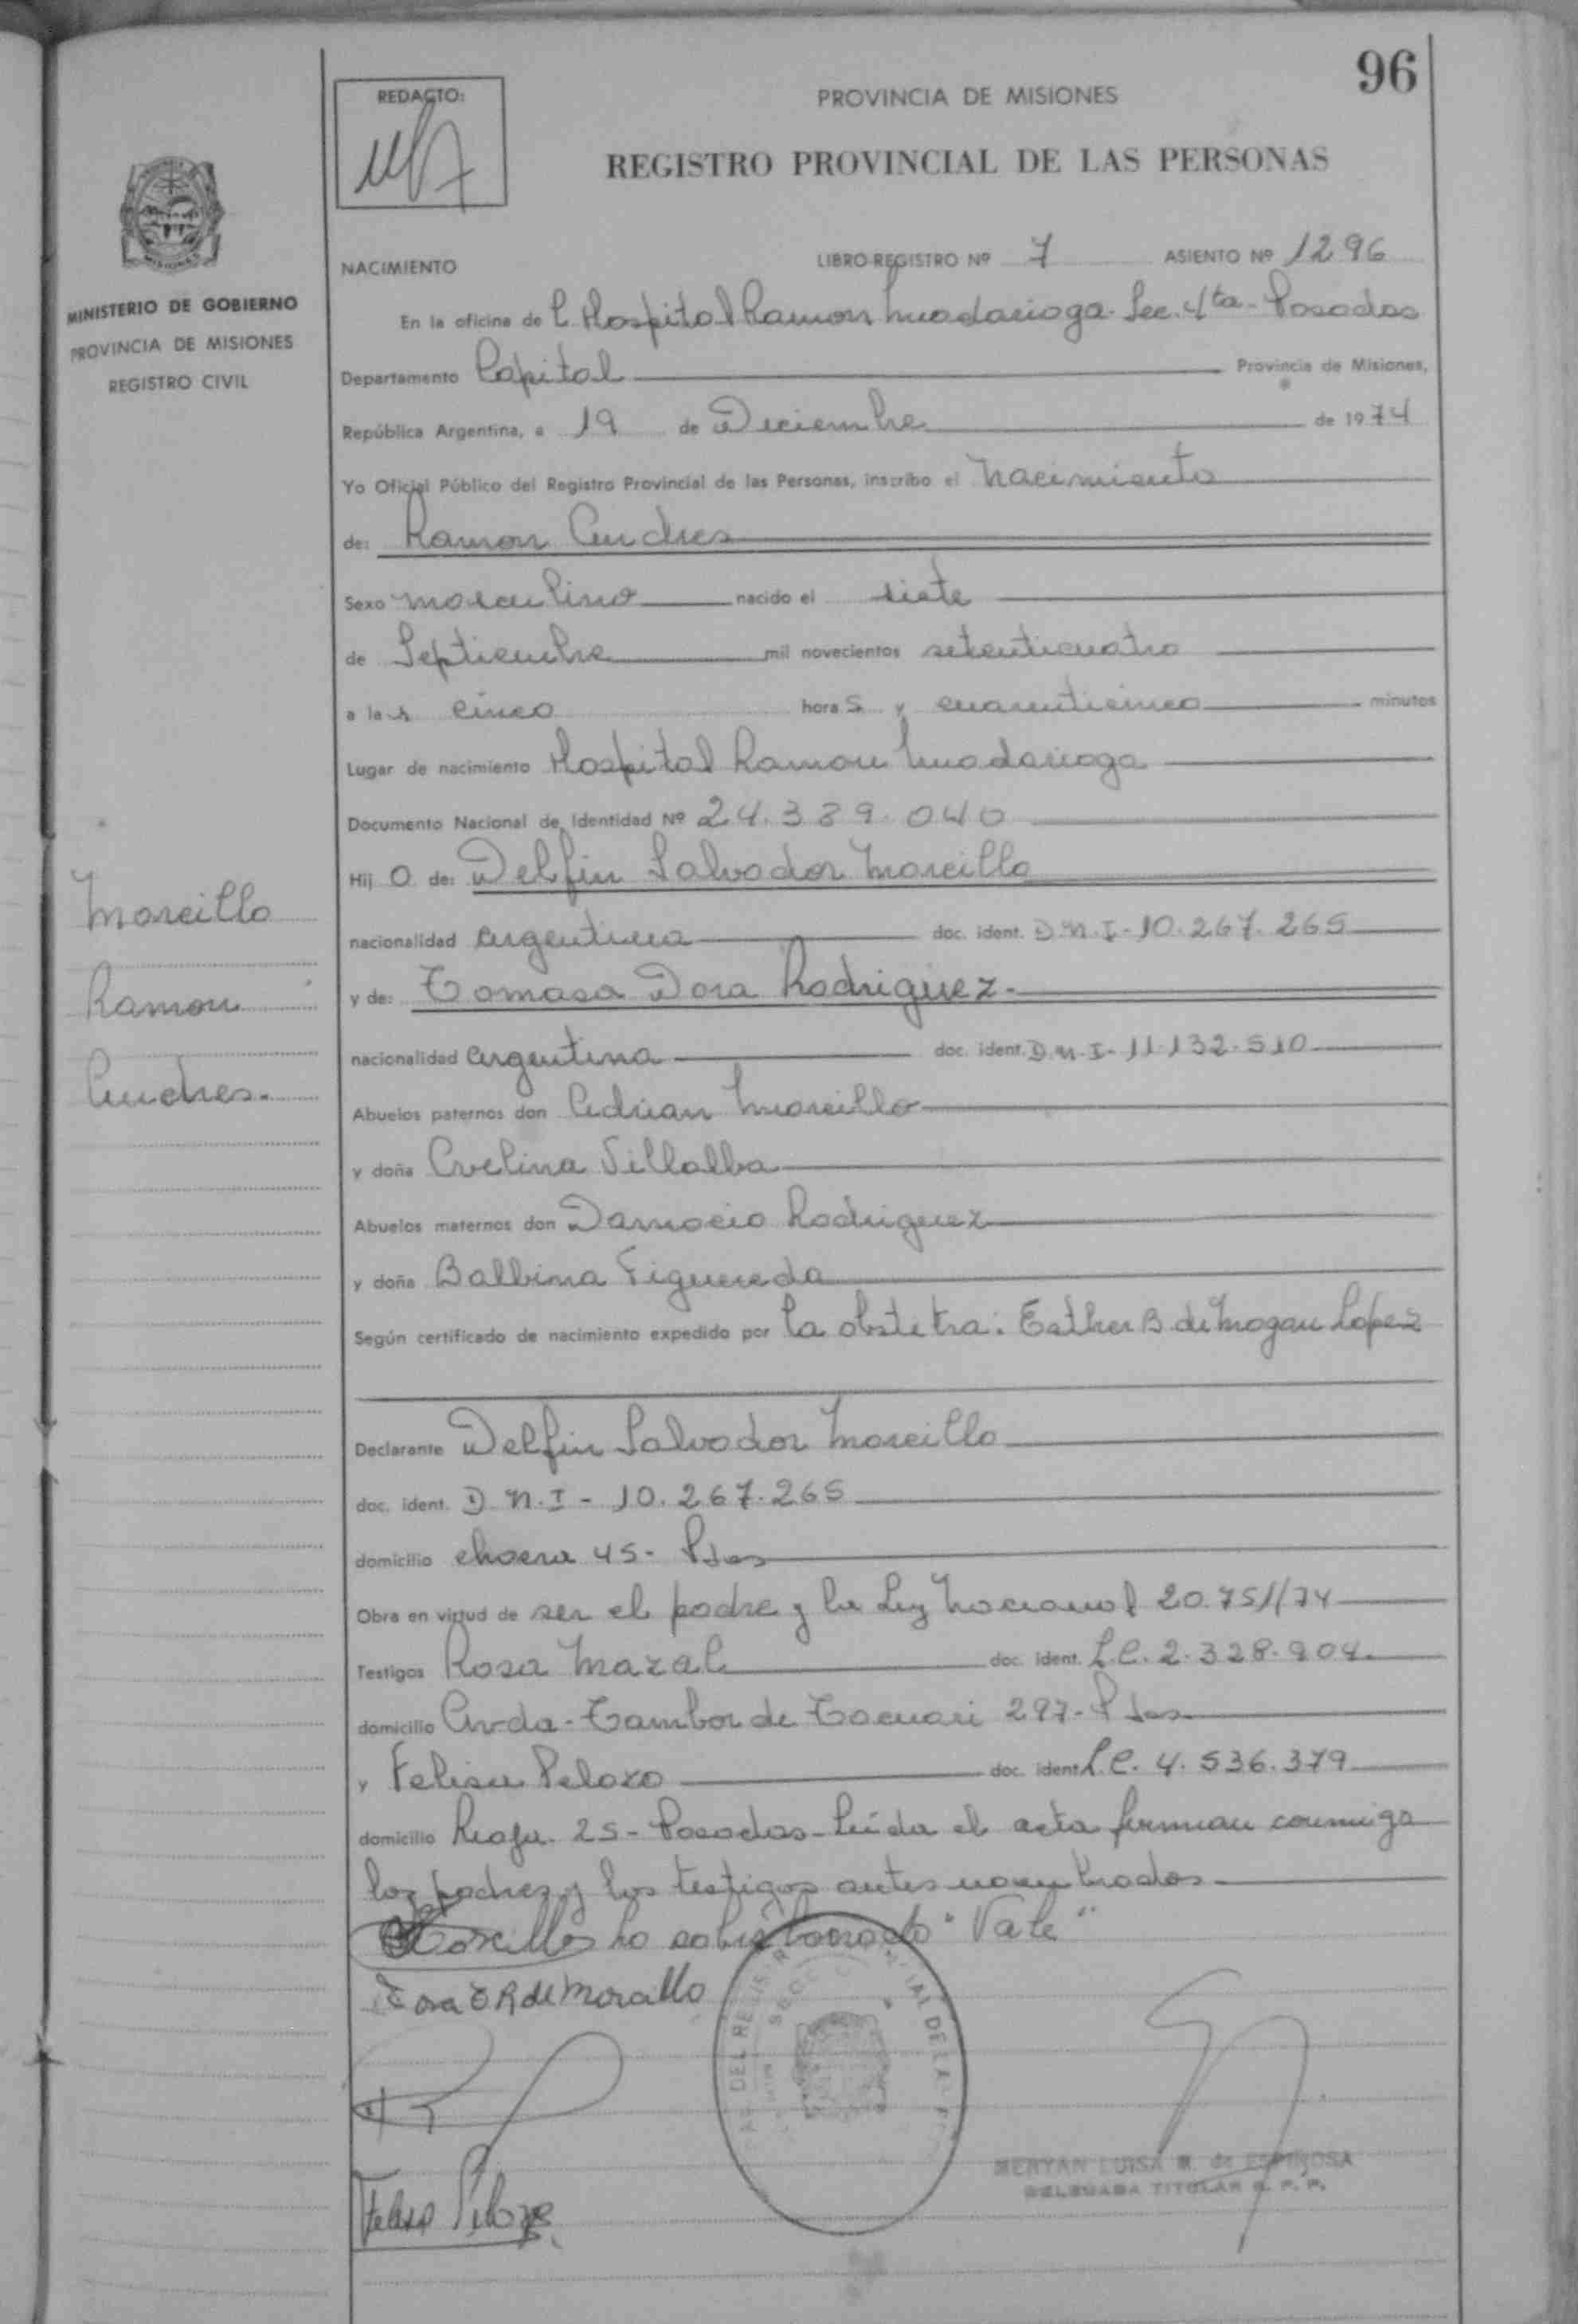 96
REDACTO:
PROVINCIA DE MISIONES
REGISTRO PROVINCIAL DE LAS PERSONAS
MINISTERIO DE GOBIERNO
PROVINCIA DE MISIONES
REGISTRO CIVIL
NACIMIENTO LIBRO-REGISTRO Nº 7 ASIENTO Nº 1296
En la oficina de Hospital Ramon Madariaga. Sec. 4ta - Posadas
Departamento Capital Provincia de Misiones,
República Argentina, a 19 de Diciembre de 1974
Yo Oficial Público del Registro Provincial de las Personas, inscribo el Nacimiento
de: Ramon Andres
Sexo masculino nacido el siete
de Septiembre mil novecientos setenticuatro
a las cinco horas y cuarenticinco minutos
Lugar de nacimiento Hospital Ramon Madariaga
Documento Nacional de Identidad Nº 24.389.040
Hijo de: Delfin Salvador Morcillo
nacionalidad argentina doc. ident. D.N.I-10.267.265
y de: Tomasa Dora Rodriguez.
nacionalidad argentina doc. ident. D.N.I-11.132.510
Abuelos paternos don Adrian Morcillo
y doña Evelina Villalba
Abuelos maternos don Damacio Rodriguez
y doña Balbina Figuereda
Según certificado de nacimiento expedido por la obstetra: Esther B de Mogan Lopez
Declarante Delfin Salvador Morcillo
doc. ident. D.N.I-10.267.265
domicilio chacra 45- Pdas
Obra en virtud de ser el padre y la Ley Nacional 20.751/74
Testigos Rosa Mazal doc. ident. L.C. 2.328.904.
domicilio Avda-Tambor de Tacuari 297-Pdas
y Felisa Pelozo doc. ident L.C. 4.536.379
domicilio 25-Posadas-Leída el acta firman conmigo
los padres y los testigos antes nombrados.
sobre borrado "Vale"
Morcillo
Ramon
Andres.
de Morcillo
DEL REGIS
IAL DE LA
MERYAN LUISA R. de ESPINOSA
DELEGADA TITULAR R. P. P.
Felisa Peloz